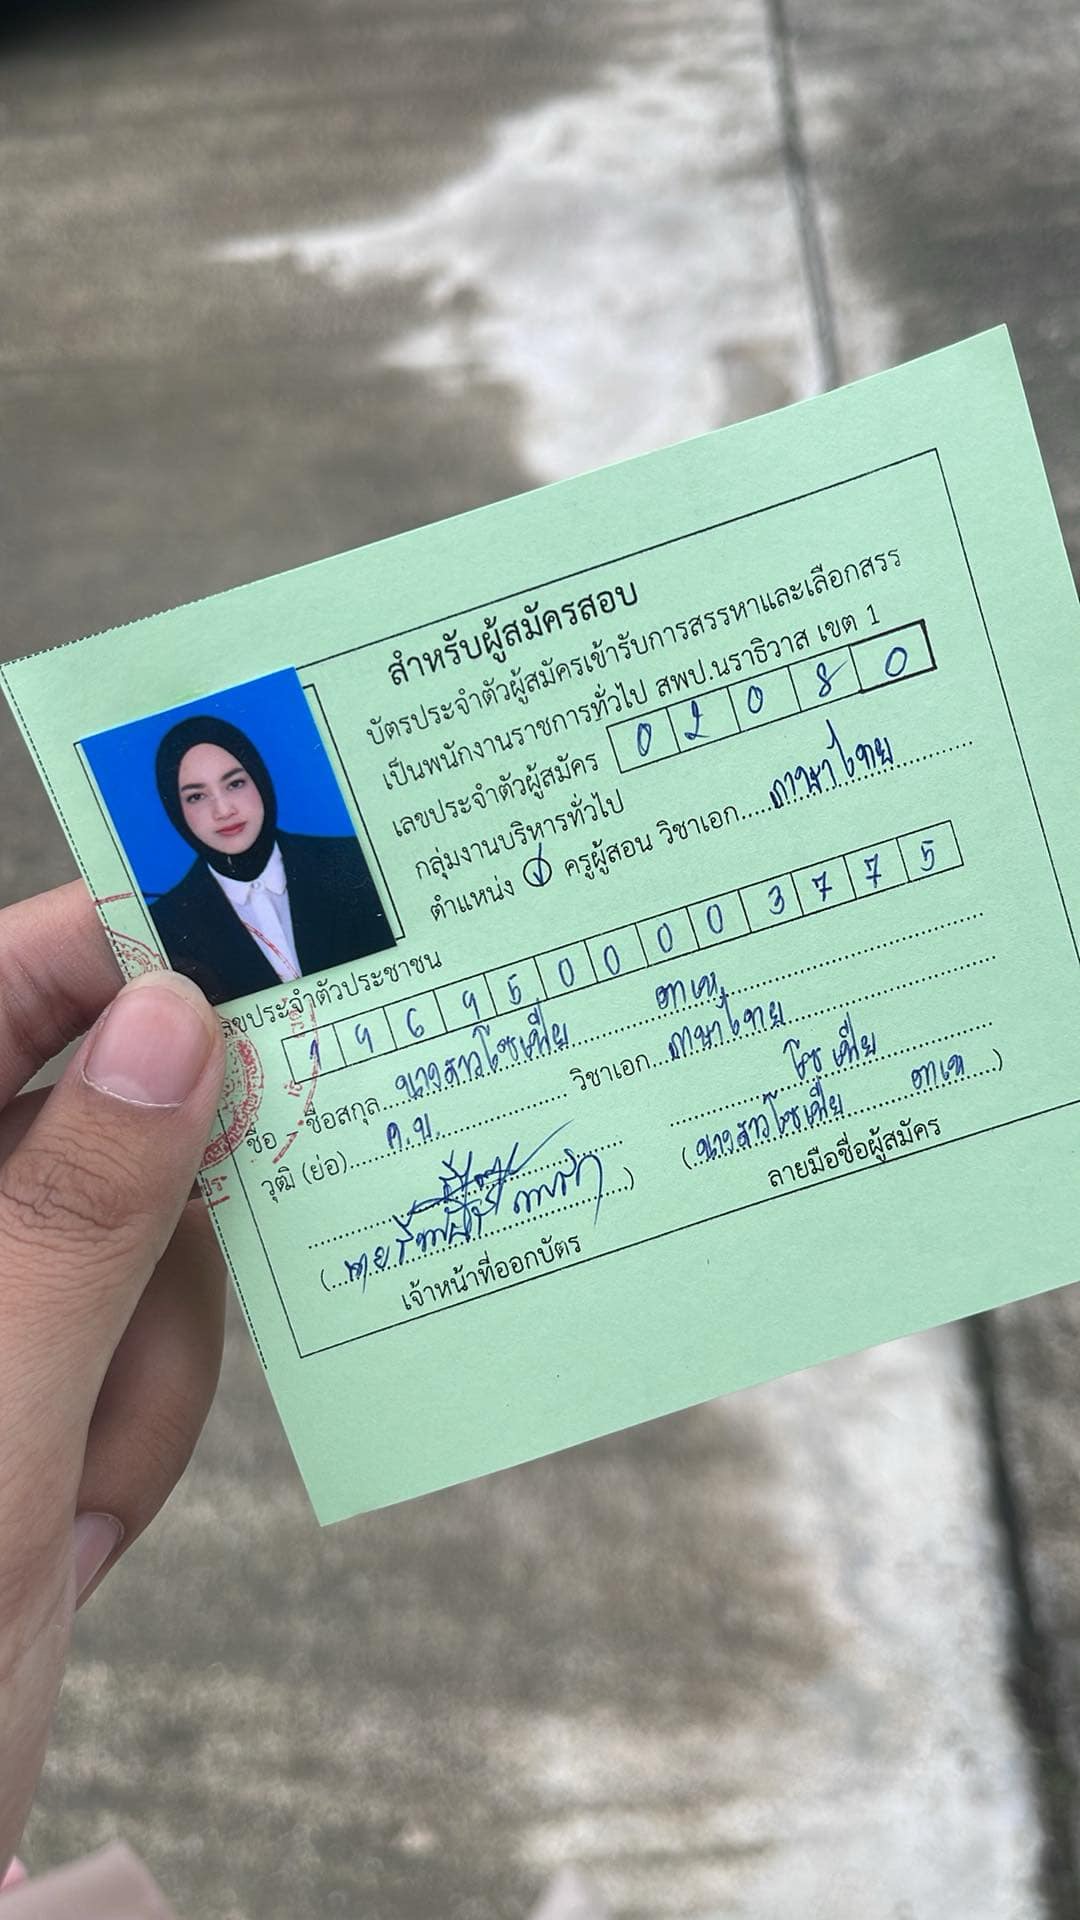 สำหรับผู้สมัครสอบ
บัตรประจำตัวผู้สมัครเข้ารับการสรรหาและเลือกสรร
เป็นพนักงานราชการทั่วไป สพป.นราธิวาส เขต 1
เลขประจำตัวผู้สมัคร 02080
กลุ่มงานบริหารทั่วไป
ตำแหน่ง ครูผู้สอน วิชาเอก.....ภาษาไทย
เลขประจำตัวประชาชน
1969500003775
ชื่อ - ชื่อสกุล...นางสาวโซเฟีย
วุฒิ (ย่อ)......ค.บ. วิชาเอก...ภาษาไทย
โซเฟีย
(นางสาวโซเฟีย )
ลายมือชื่อผู้สมัคร
(...นาย )
เจ้าหน้าที่ออกบัตร